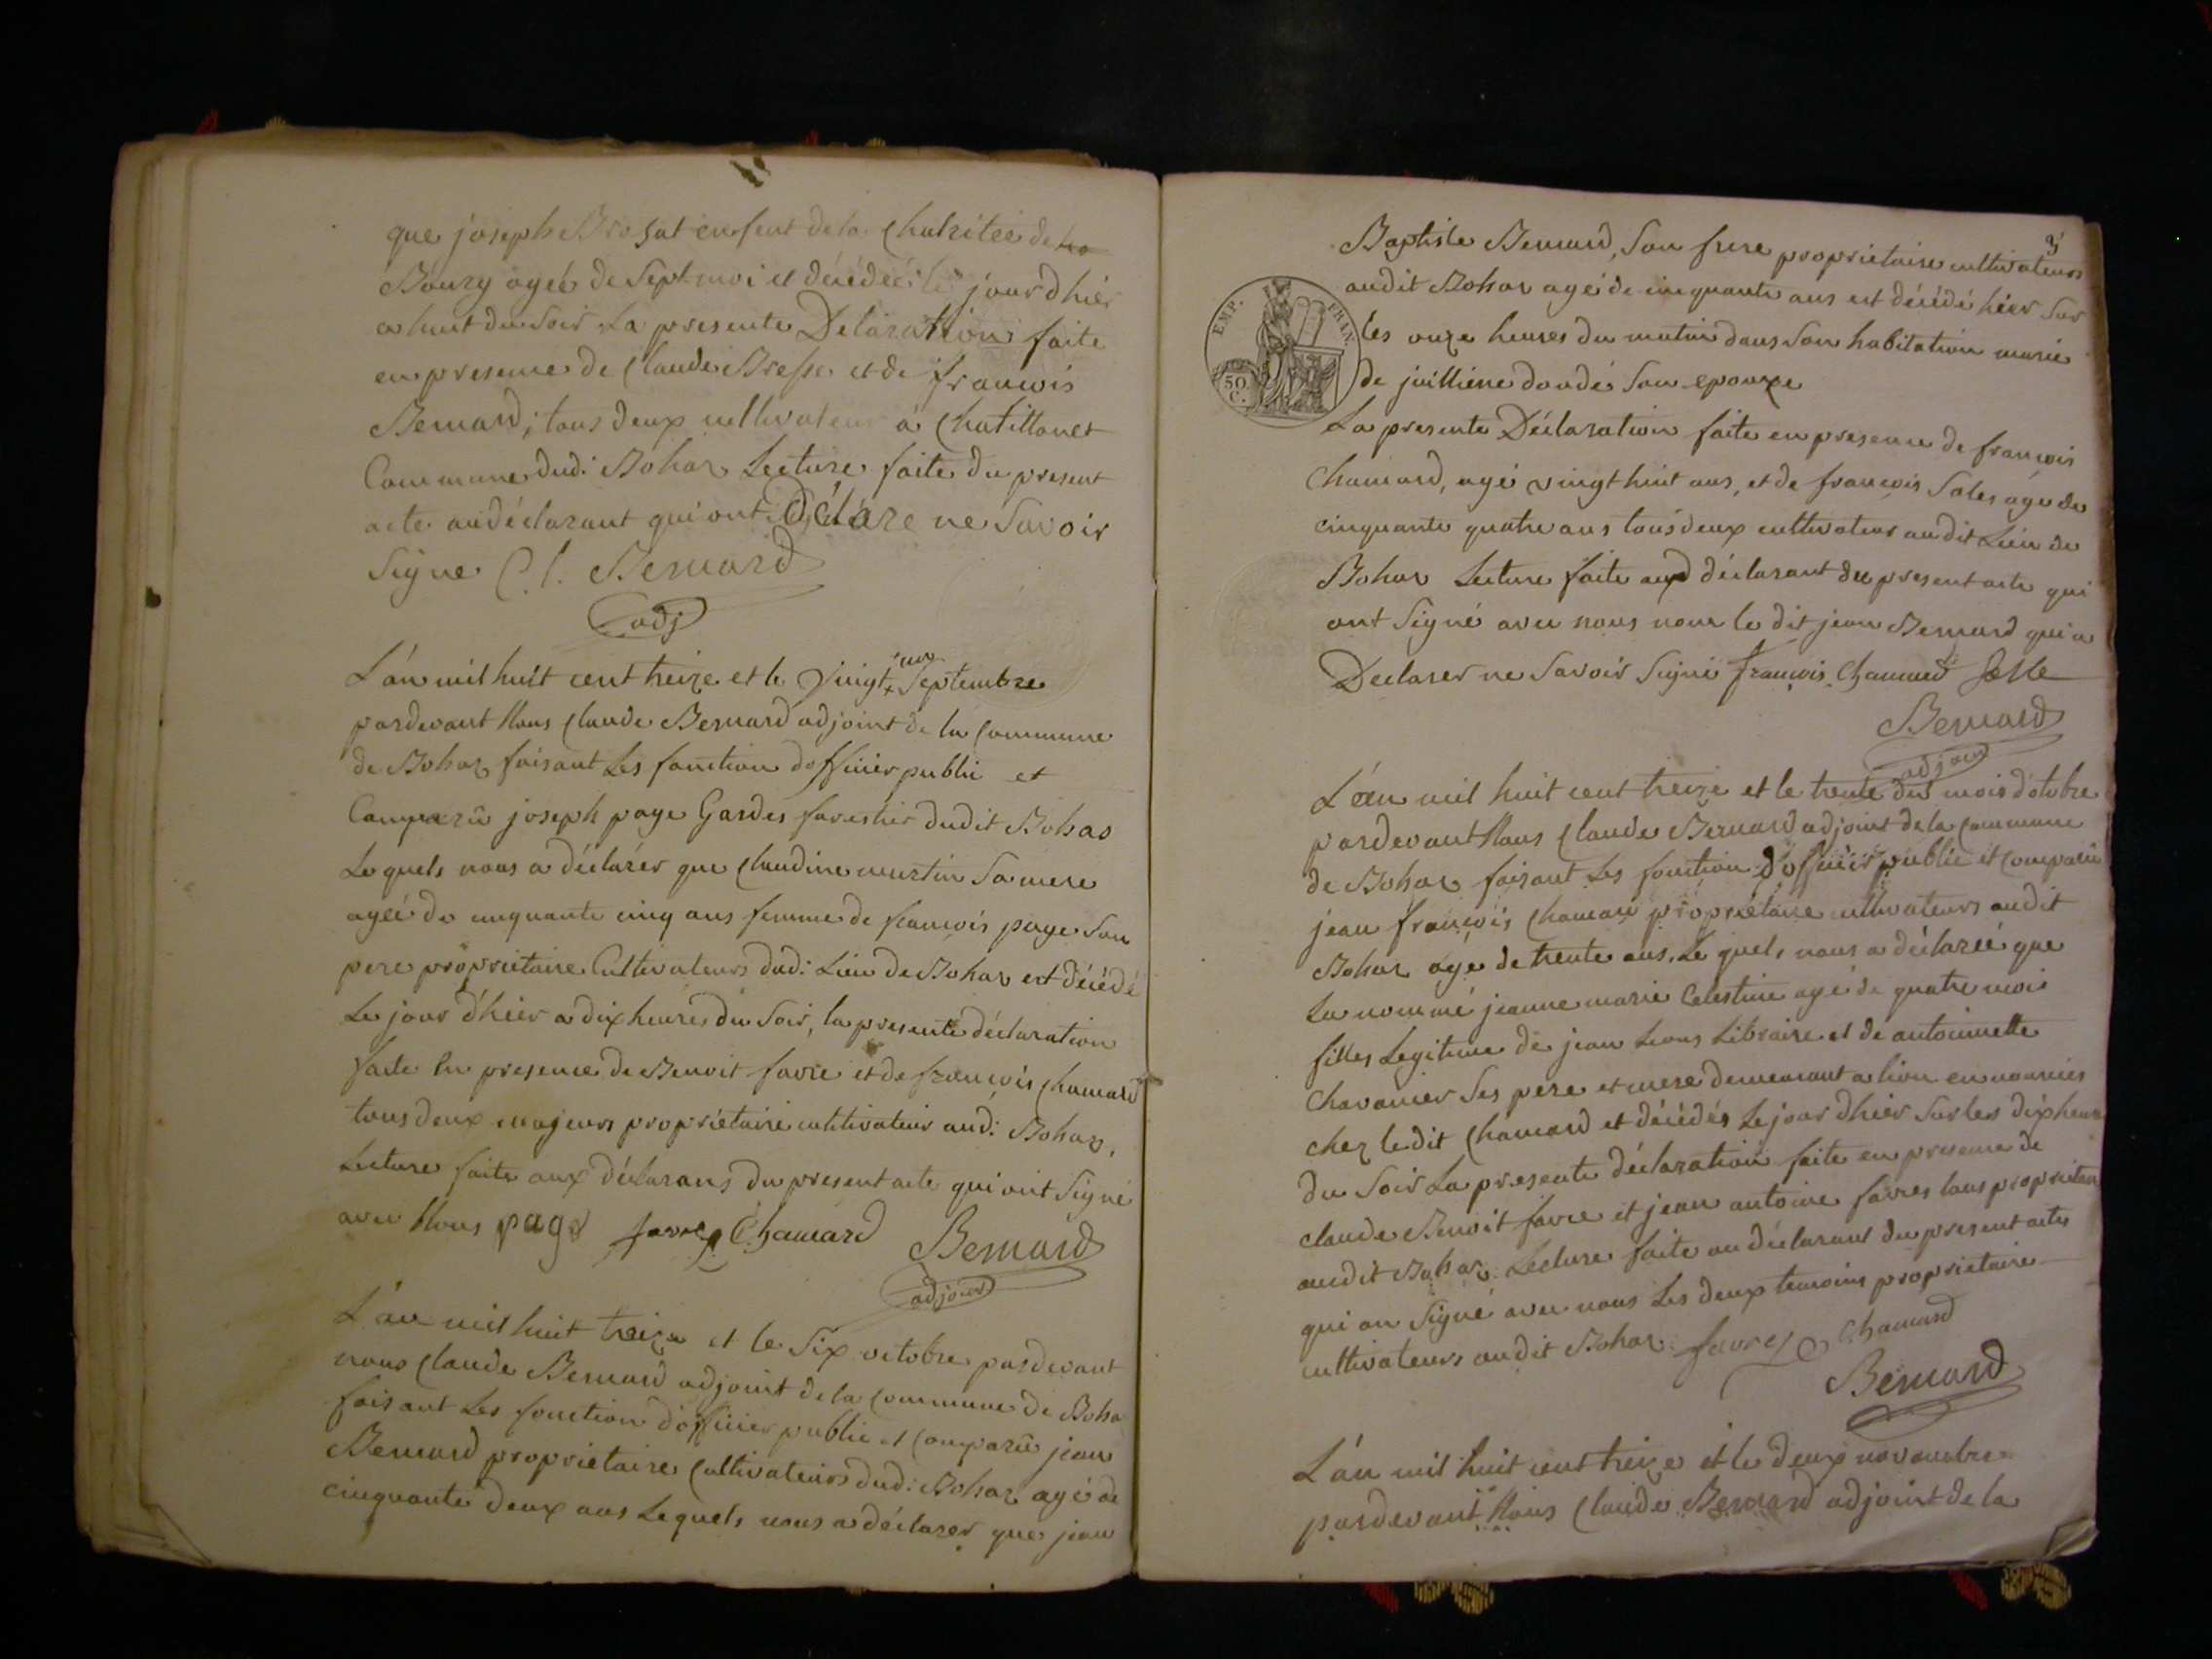 que joseph Brosat enfent de la Chahitée de ho
Bourg ageé de Sept moi et décédée le jour dhiér
a huit du Soir La presente Délaration faite
en presence de Claude Bresse et de francois
Bernard, tous deux cultivateur a Chatillonet
Commune dud: Bohaz Lecture faite du present
acte au déclarant qui ont Déclare ne Savoir
Signe Cl. Bernard
adj
L'án mil huit cent treize et le Vingt Septembre
pardevant Nous Claude Bernard adjoint de la Commune
de Bohaz faisant Les fonction dofficier public et
Comparu joseph page Gardes forestier dudit Bohas
Lequels nous a déclarér que Claudine martin Sa mere
ageé de cinquante cinq ans femme de francois page Son
pere propriétaire Cultivateurs dud: Lieu de Bohaz est décédé
Le jour d'hiér a dix heures du Soir, la presente déclaration
faite en presence de Benoit favre et de francois Chamard
tous deux majeurs propriétaire cultivateur aud: Bohaz,
Lecture faite aux déclarans du present acte qui ont Signé
avec Nous page favre Chamard Bernard
adjoint
L'án mil huit treize et le Six octobre pardevant
nous Claude Bernard adjoint de la Commune de Boha
faisant Les fonction d'officier public et Comparu jean
Bernard propriétaire Cultivateurs dud: Bohaz agé de
cinquante deux ans Lequels nous a déclarer que jean
3
Baptiste Bernard, Son frere propriétaire cultivateurs
audit Bohaz agé de cinquante ans est décédé hiér Sur
EMP. FRAN.
les onze heures du matin dans Son habitation marié
50 C.
de juilliene doudé Son epouxe
La presente Déclaration faite en presence de francois
Chamard, agé vingt huit ans, et de francois Sales age de
cinquante quatre ans tous deux cultivateur audit Lieu de
Bohaz Lecture faite aux déclarant du present acte qui
ont Signé avec nous non le dit jean Bernard qui a
Declarer ne Savoir Signé francois Chamard Salle
Bernard
adjoint
L'án mil huit cent treize et le trente du mois d'otobre
pardevant Nous Claude Bernard adjoint de la Commune
de Bohaz faisant Les fonction d'officier public et Comparu
jean françois Chamard propriétaire cultivateurs audit
Bohaz age de trente ans, Lequels nous a déclareé que
La nommé jeanne marie Celestine agé de quatre mois
filles Legitime de jean Lions Libraire et de antoinnette
Chavanier Ses pere et mere demeurant a lion en nourrice
chez ledit Chamard et décédés Le jour dhiér Sur les dix heure
du Soir La presente déclaration faite en presence de
claude Benoit favre et jean antoine favres tous proprietair
audit Bohaz Lecture faite au déclarant du present actes
qui on Signé avec nous Les deux temoins proprietaire
cultivateurs audit Bohaz favre Chamard
Bernard
L'án mil huit cent treize et le deux novembre
pardevant Nous Claude Bernard adjoint de la